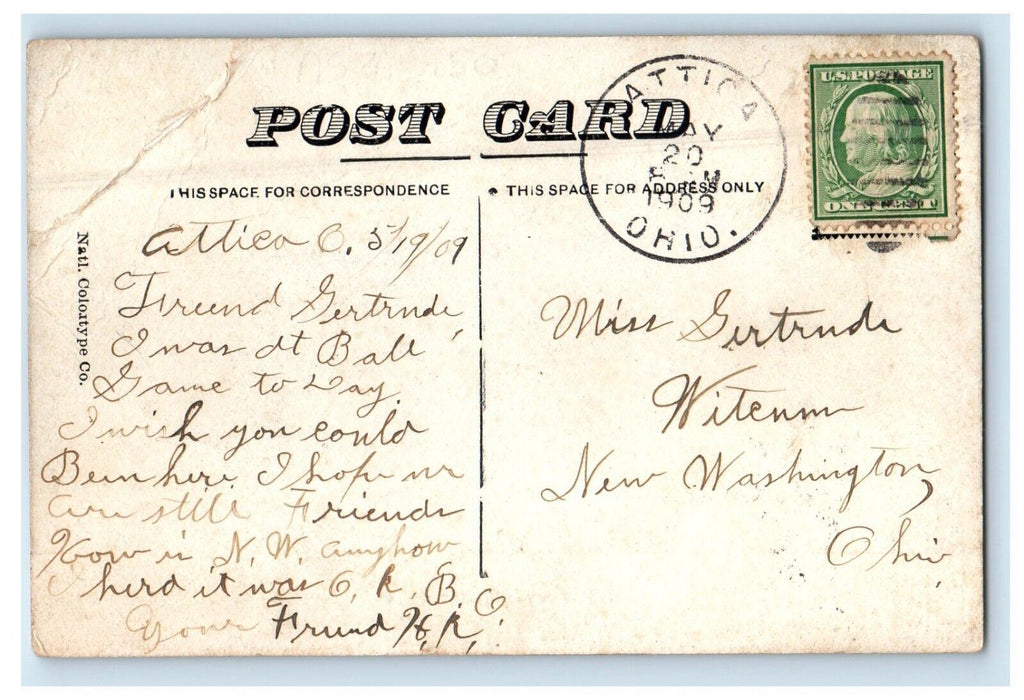 POST CARD
THIS SPACE FOR CORRESPONDENCE
THIS SPACE FOR ADDRESS ONLY
ATTICA
MAY
20
M
1909
OHIO.
U.S. POSTAGE
ONE CENT
Natl. Colortype Co.
Attica O. 5/19/09
Friend Gertrude
I was at Ball
Game to Day.
I wish you could
Been here. I hope we
are still Friends
How is N. W. anyhow
I herd it was O. K. B. C.
Your Friend H. K.
Miss Gertrude
New Washington,
Ohio